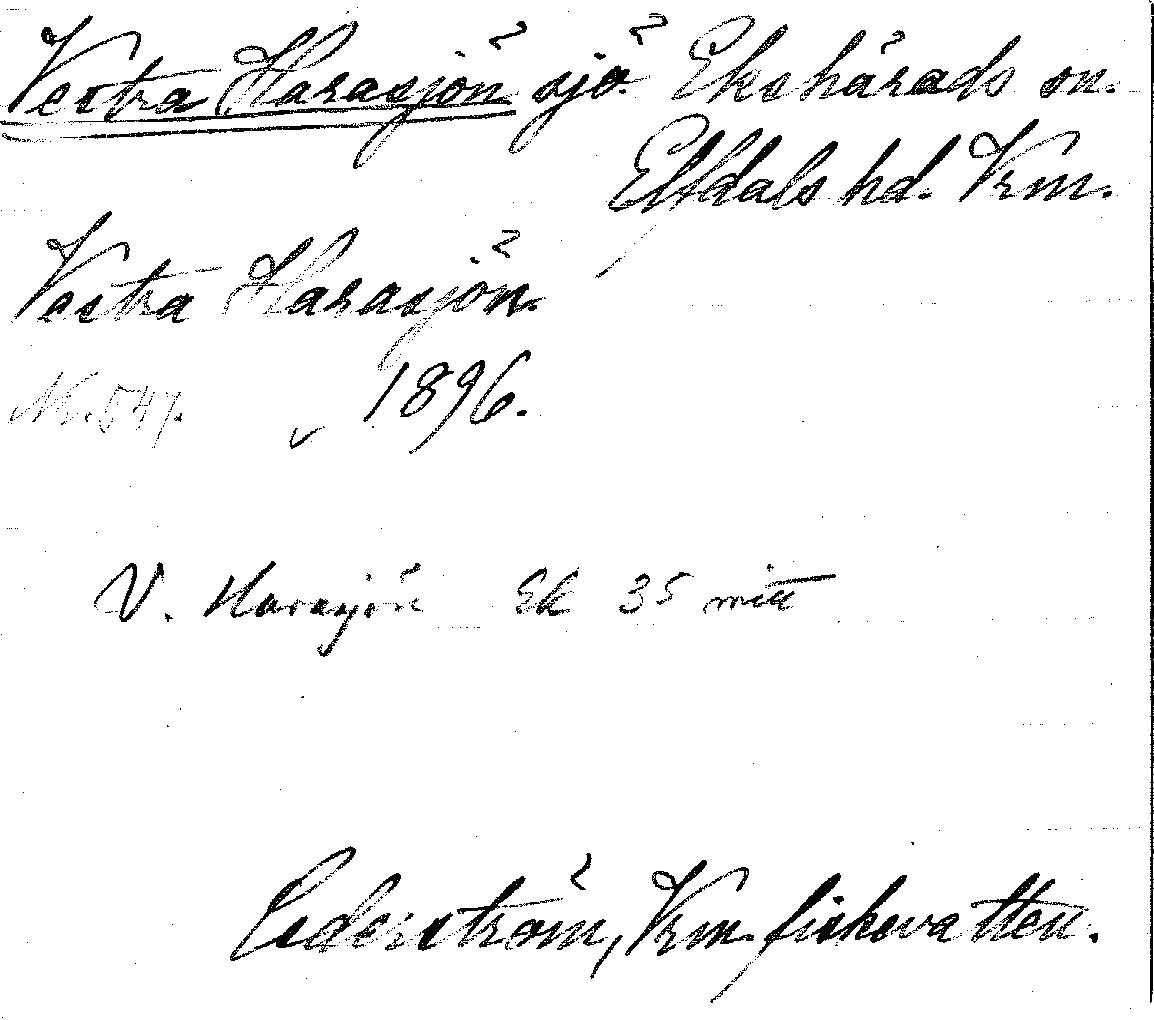 Vestra Harasjön sjö Ekshärads sn.
Elfdals hd. Vrm.
Vestra Harasjön.
Nr. 547. 1896.
V. Harasjön Ek 35 mitt
Cederström, Vrm. fiskevatten.